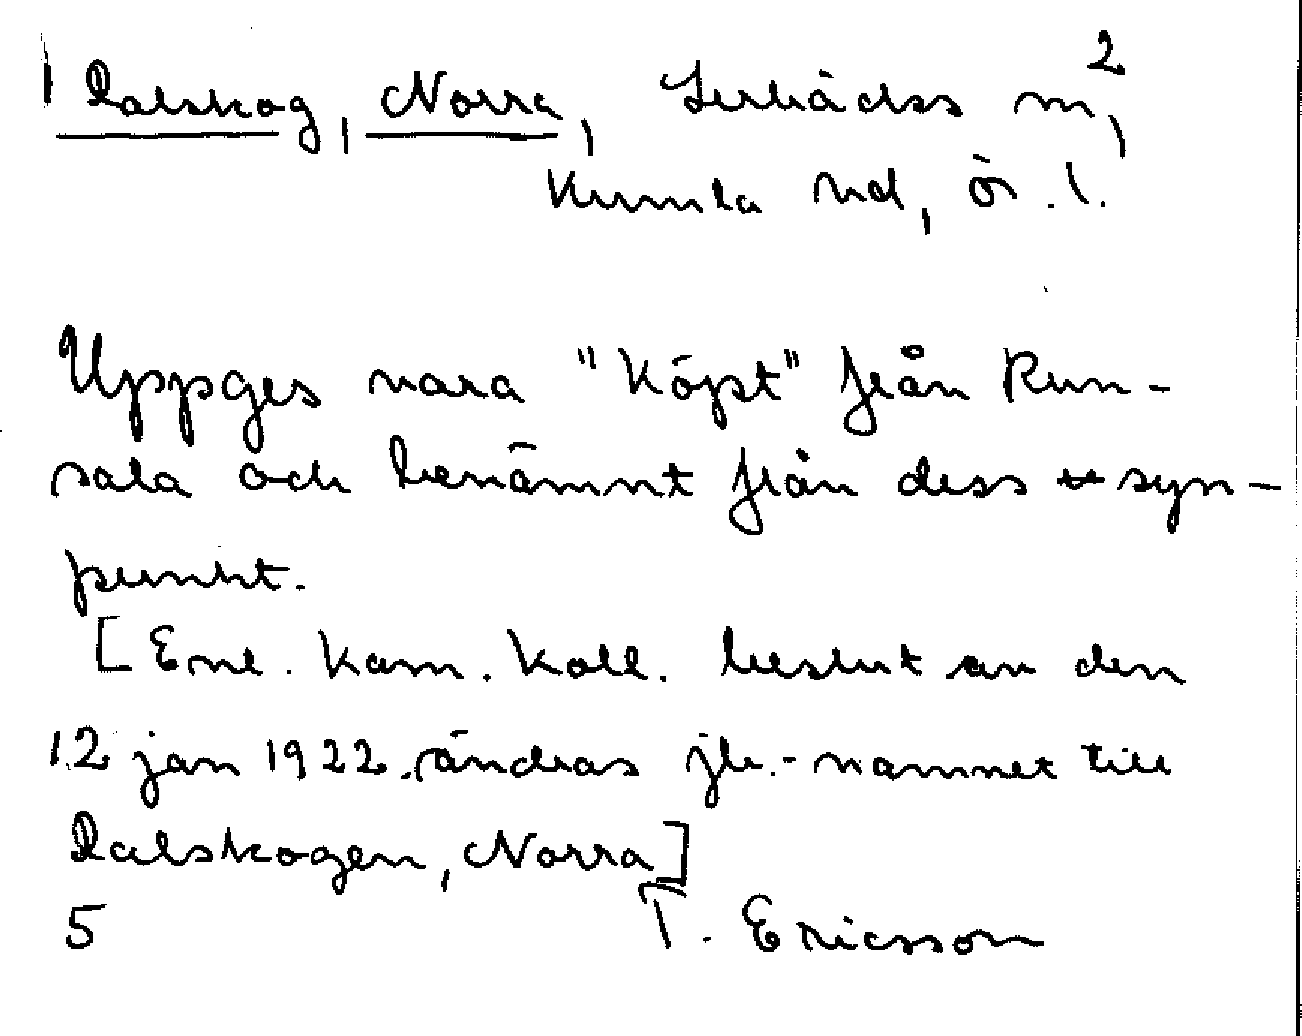 Dalskog, Norra, Lerbäcks sn², 
Kumla hd, Ör. l.
Uppges vara "köpt" från Run-
sala och benämnt från dess syn-
punkt.
[Enl. Kam. Koll. beslut av den
12 jan 1922 ändras jb.-namnet till
Dalskogen, Norra]
5 T. Ericsson